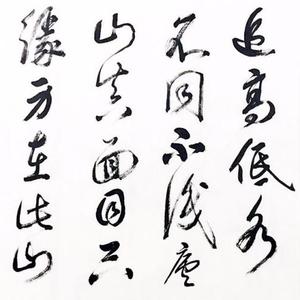 近高低各
不同不識廬
山真面目只
緣身在此山